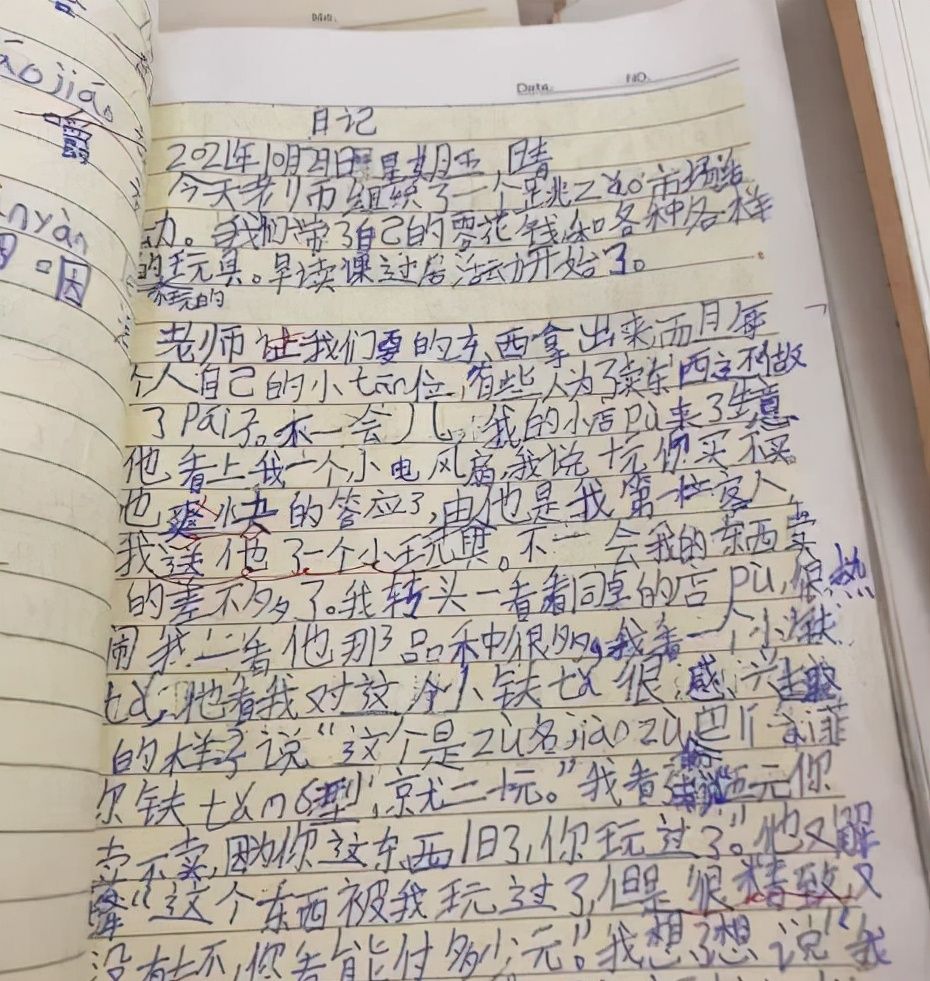 Date.
NO.
日记
2021年10月29日 星期五 晴
今天老师组织了一个跳zao市场活
动。我们带了自己的零花钱和各种各样
的玩具。早读课过后活动开始了。
老师让我们要的东西拿出来而且每
个人自己的小tan位,有些人为了卖东西还做
了pai子。不一会儿,我的小店pù来了生意
他看上我一个小电风扇,我说十元你买不买
他爽快的答应了,由他是我第一位客人,
我送他了一个小玩具。不一会我的东西卖
的差不多了。我转头一看看同桌的店pù,很热
闹我一看他那品种很多,我看一个小铁
tǎ,他看我对这个小铁tǎ很感兴趣
的样子说“这个是zù名jiàn zù巴斤 菲
尔铁tǎ mó型,就二十元。”我看 五元你
卖不卖,因为你这东西旧了,你玩过了”。他又解
释“这个东西被我玩过了,但是很精致,又
没有坏,你看能付多少元”。我想了想说“我
áojiáo
嚼
nyàn
因